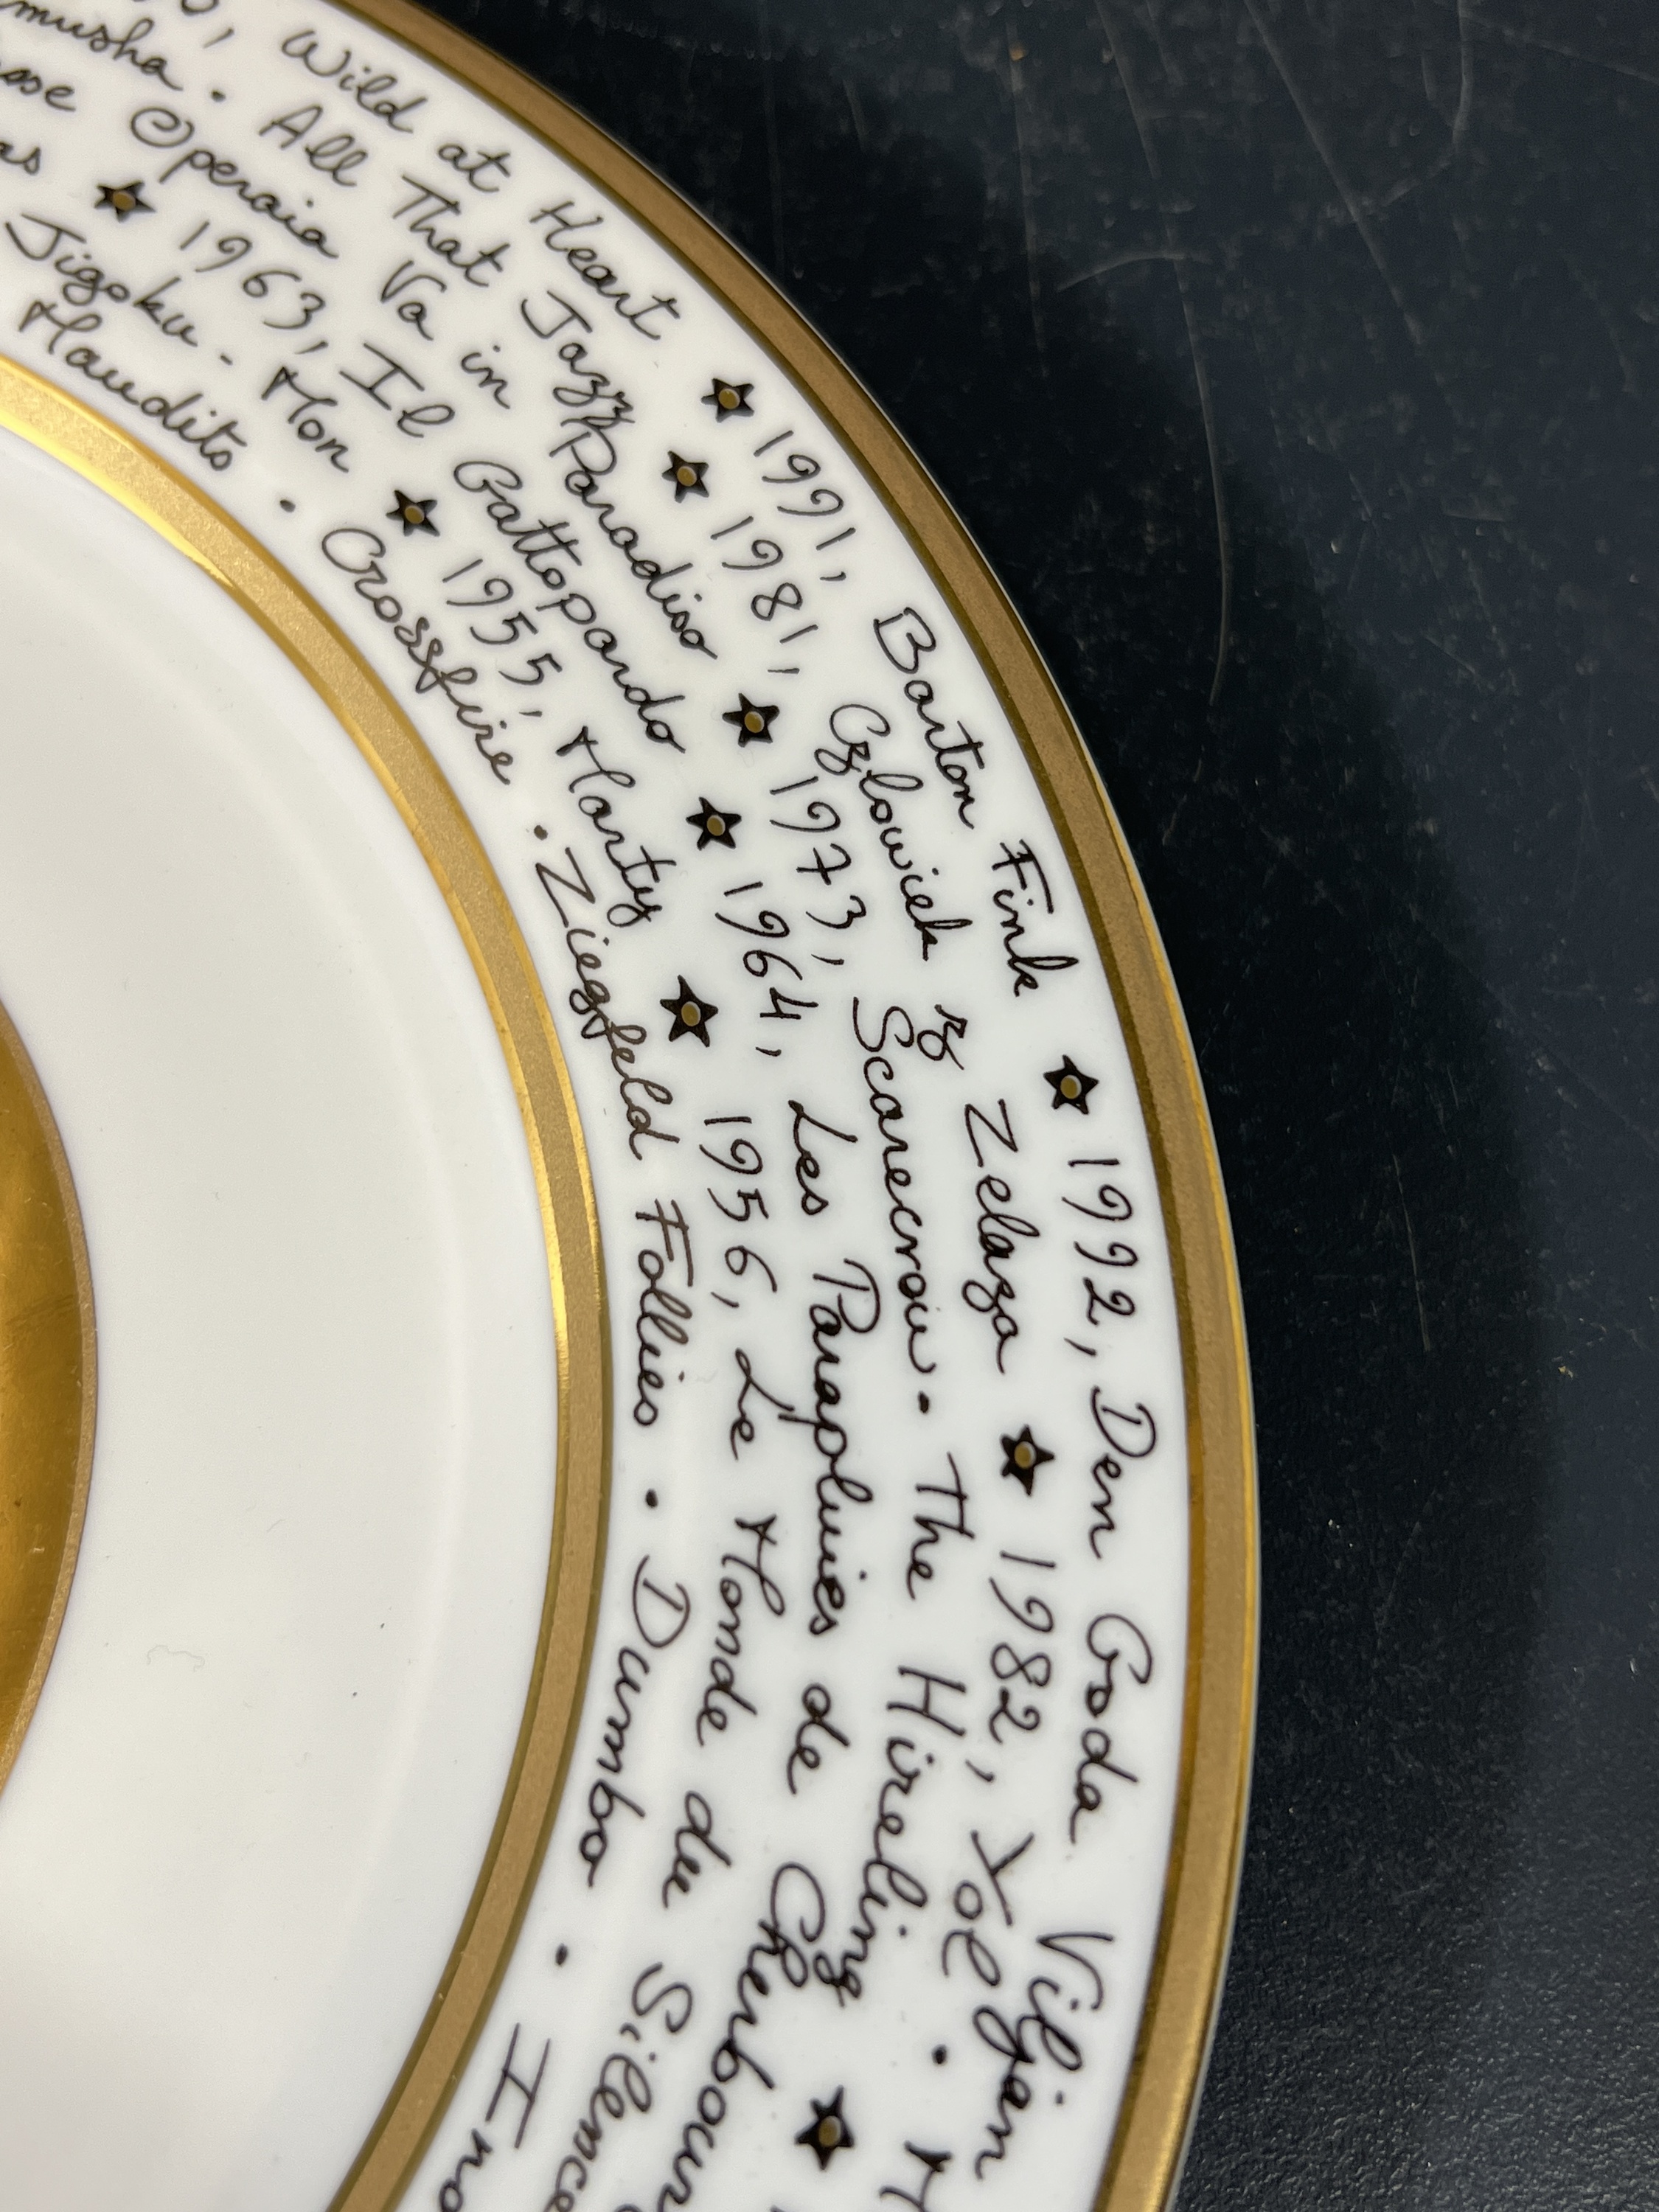 Wild at Heart ★ 1991, Barton Fink ★ 1992, Den Goda Viljan
musha. All That Jazz ★ 1981, Czlowiek z Zelaza ★ 1982, Yol •
Operaia Va in Paradiso ★ 1973, Scarecrow. The Hireling ★
★ 1963, Il Gattopardo ★ 1964, Les Parapluies de Cherbourg
Jigoku. Mon ★ 1955, Marty ★ 1956, Le Monde du Silence
Maudits • Crossfire • Ziegfeld Follies • Dumbo •